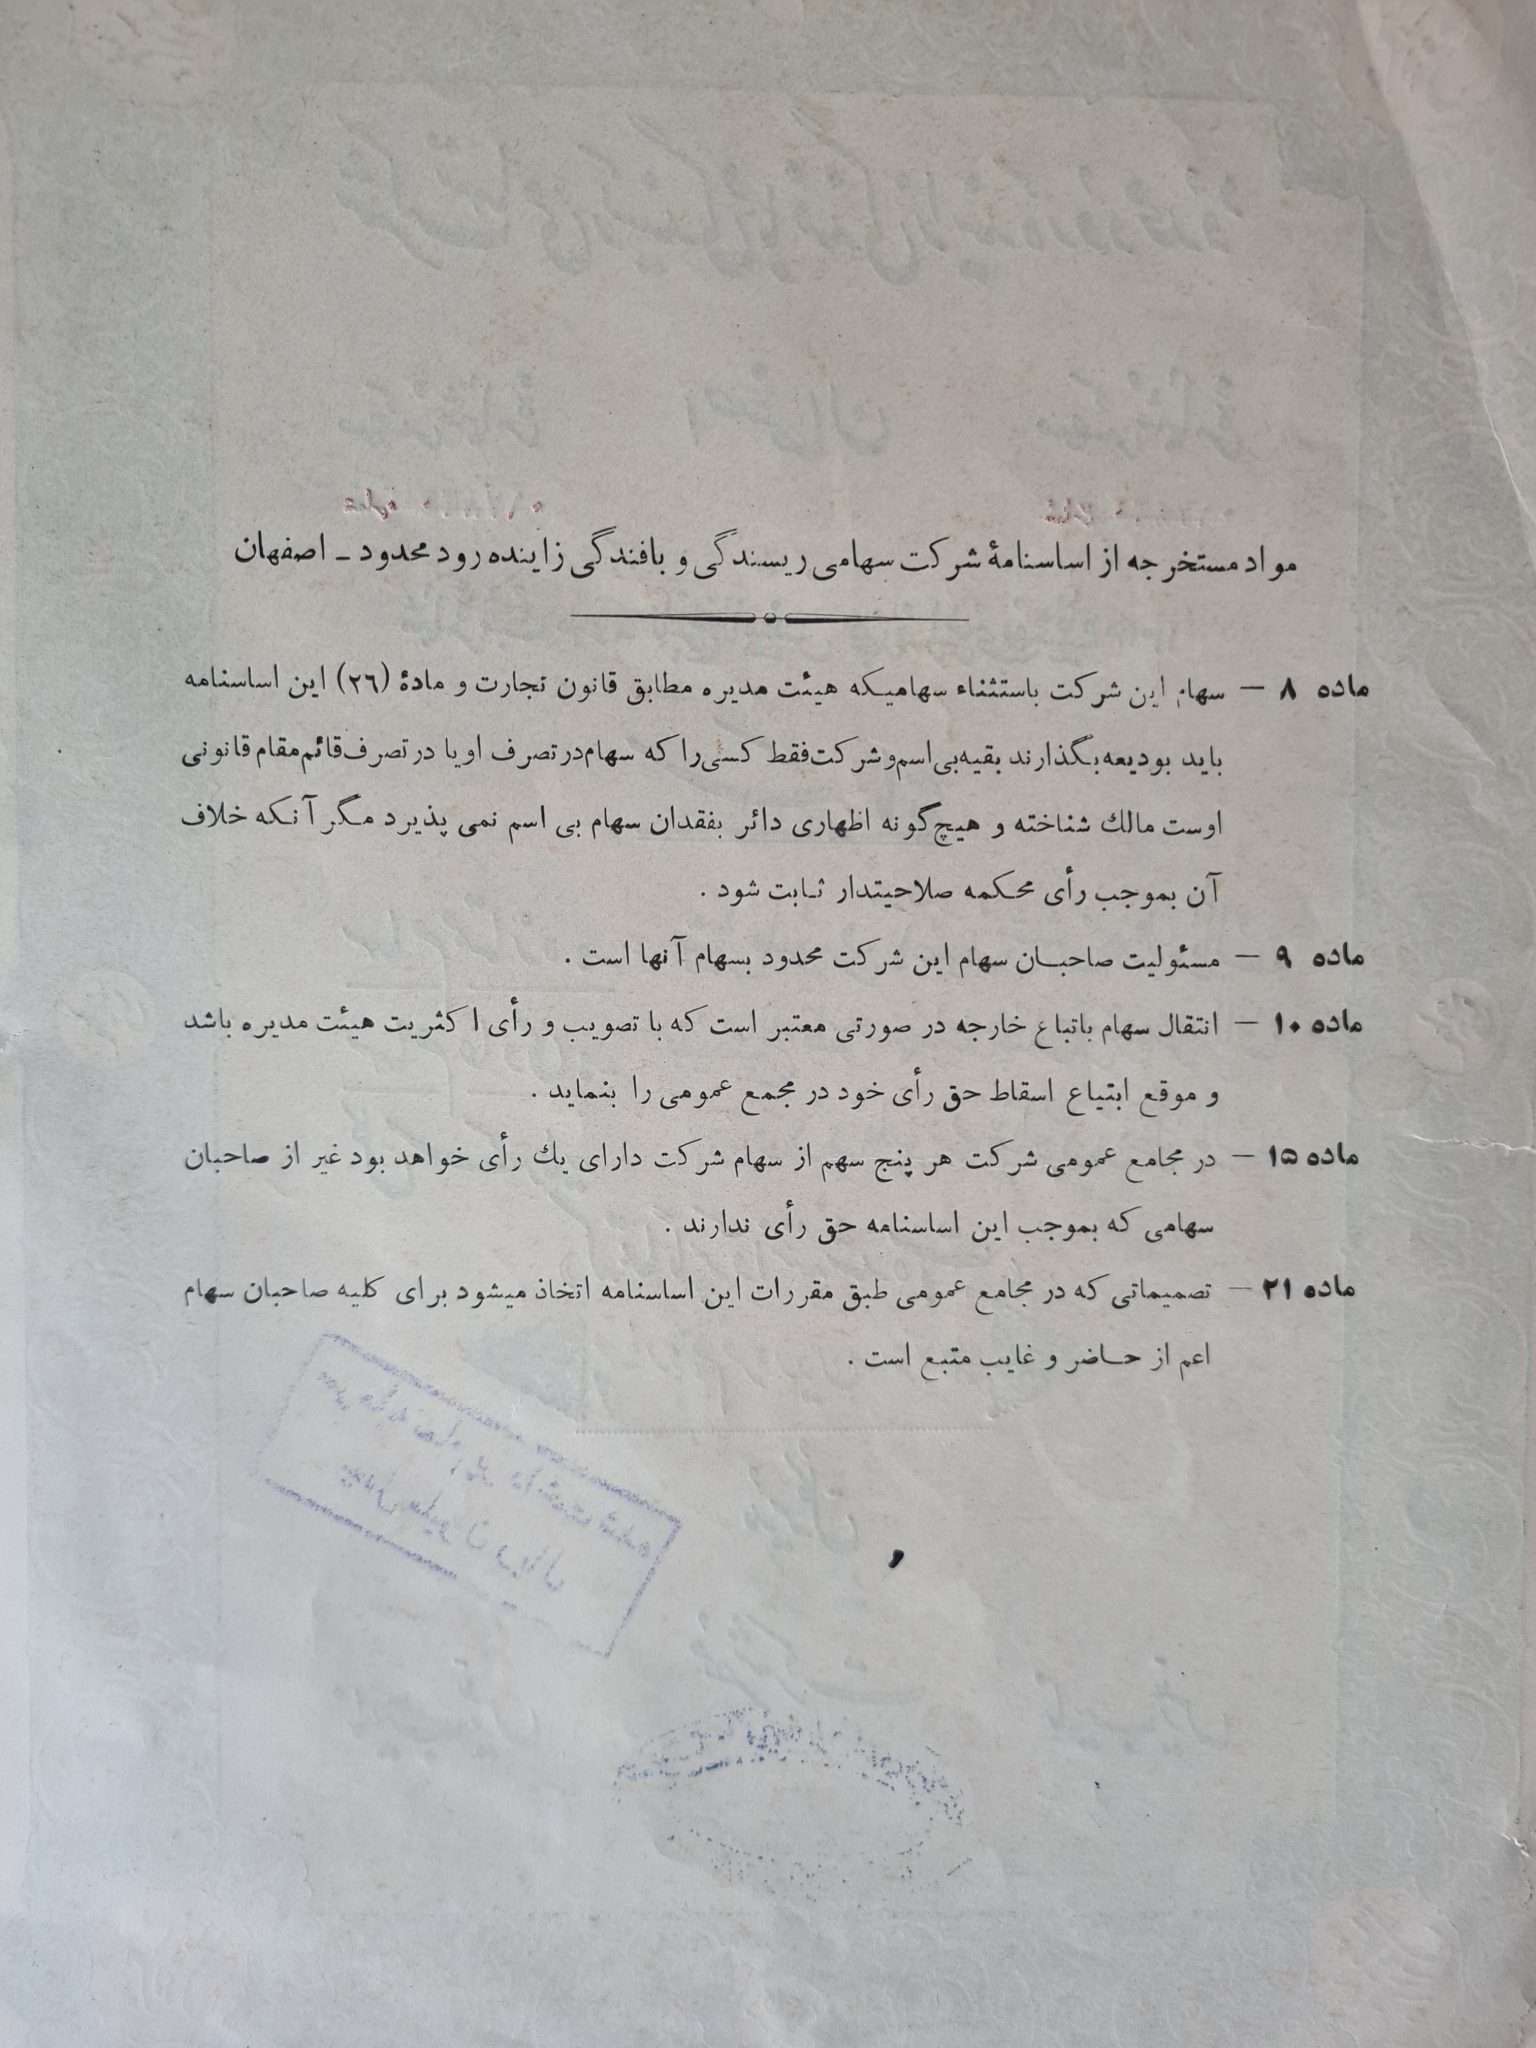 مواد مستخرجه از اساسنامهٔ شرکت سهامی ریسندگی و بافندگی زاینده رود محدود ـ اصفهان
ماده ۸ — سهام این شرکت باستثناء سهامیکه هیئت مدیره مطابق قانون تجارت و مادهٔ (۲۶) این اساسنامه
باید بودیعه بگذارند بقیه بی اسم و شرکت فقط کسی را که سهام در تصرف او یا در تصرف قائم مقام قانونی
اوست مالك شناخته و هیچ گونه اظهاری دائر بفقدان سهام بی اسم نمی پذیرد مگر آنکه خلاف
آن بموجب رأی محکمه صلاحیتدار ثابت شود .
ماده ۹ — مسئولیت صاحبان سهام این شرکت محدود بسهام آنها است .
ماده ۱۰ — انتقال سهام باتباع خارجه در صورتی معتبر است که با تصویب و رأی اکثریت هیئت مدیره باشد
و موقع ابتیاع اسقاط حق رأی خود در مجمع عمومی را بنماید .
ماده ۱۵ — در مجامع عمومی شرکت هر پنج سهم از سهام شرکت دارای یك رأی خواهد بود غیر از صاحبان
سهامی که بموجب این اساسنامه حق رأی ندارند .
ماده ۲۱ — تصمیماتی که در مجامع عمومی طبق مقررات این اساسنامه اتخاذ میشود برای کلیه صاحبان سهام
اعم از حاضر و غایب متبع است .